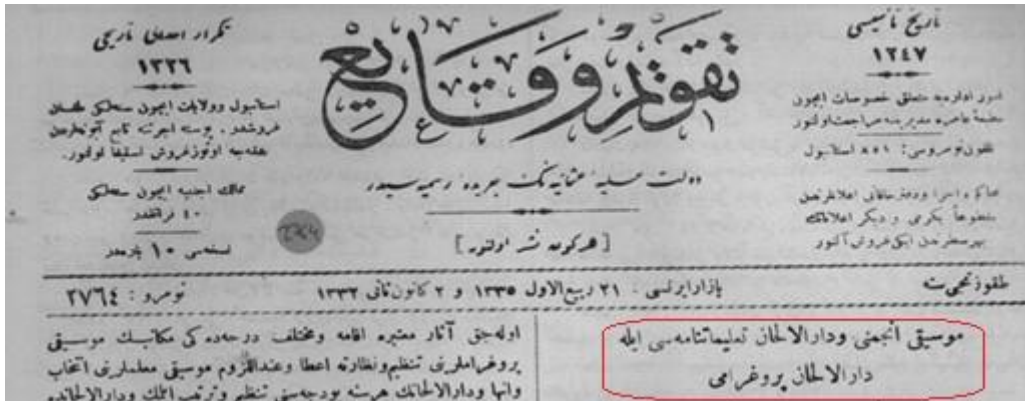 تاريخ تأسيسى
١٢٤٧
امور اداره‌يه متعلق خصوصات ايچون
مطبعهٔ عامره مديريتنه مراجعت اولنور
تلفون نومروسى: ٨٥١ استانبول
تقويم وقايع
دولت عليه عثمانيه‌نك جريده رسميه‌سيدر
[ هركون نشر اولنور ]
تكرار احداثى تاريخى
١٣٢٦
استانبول وولايات ايچون سنه‌لكى
فروشدر. پوسته اجرتنه تابع
اوتوز فروش
ممالك اجنبيه ايچون سنه‌لكى
٤٠ فرانقدر
نسخه‌سى ١٠ پاره‌در
طقوزنجى سنه
بازارايرتسى: ٢١ ربيع الاول ١٣٣٥ و ٢ كانون ثانى ١٣٣٢
نومرو: ٢٧٦٤
موسيقى انجمنى ودارالالحان تعليماتنامه‌سى ايله
دارالالحان پروغرامى
اوله‌جق آثار معتبره اقامه ومختلف درجه‌ده كى مكاتبك موسيقى
پروغراملرينى تنظيم ونظارته اعطا وعنداللزوم موسيقى معلملرينى انتخاب
ودارالالحانك هر سنه بودجه‌سنى تنظيم وترتيب ايتمك ودارالالحانده